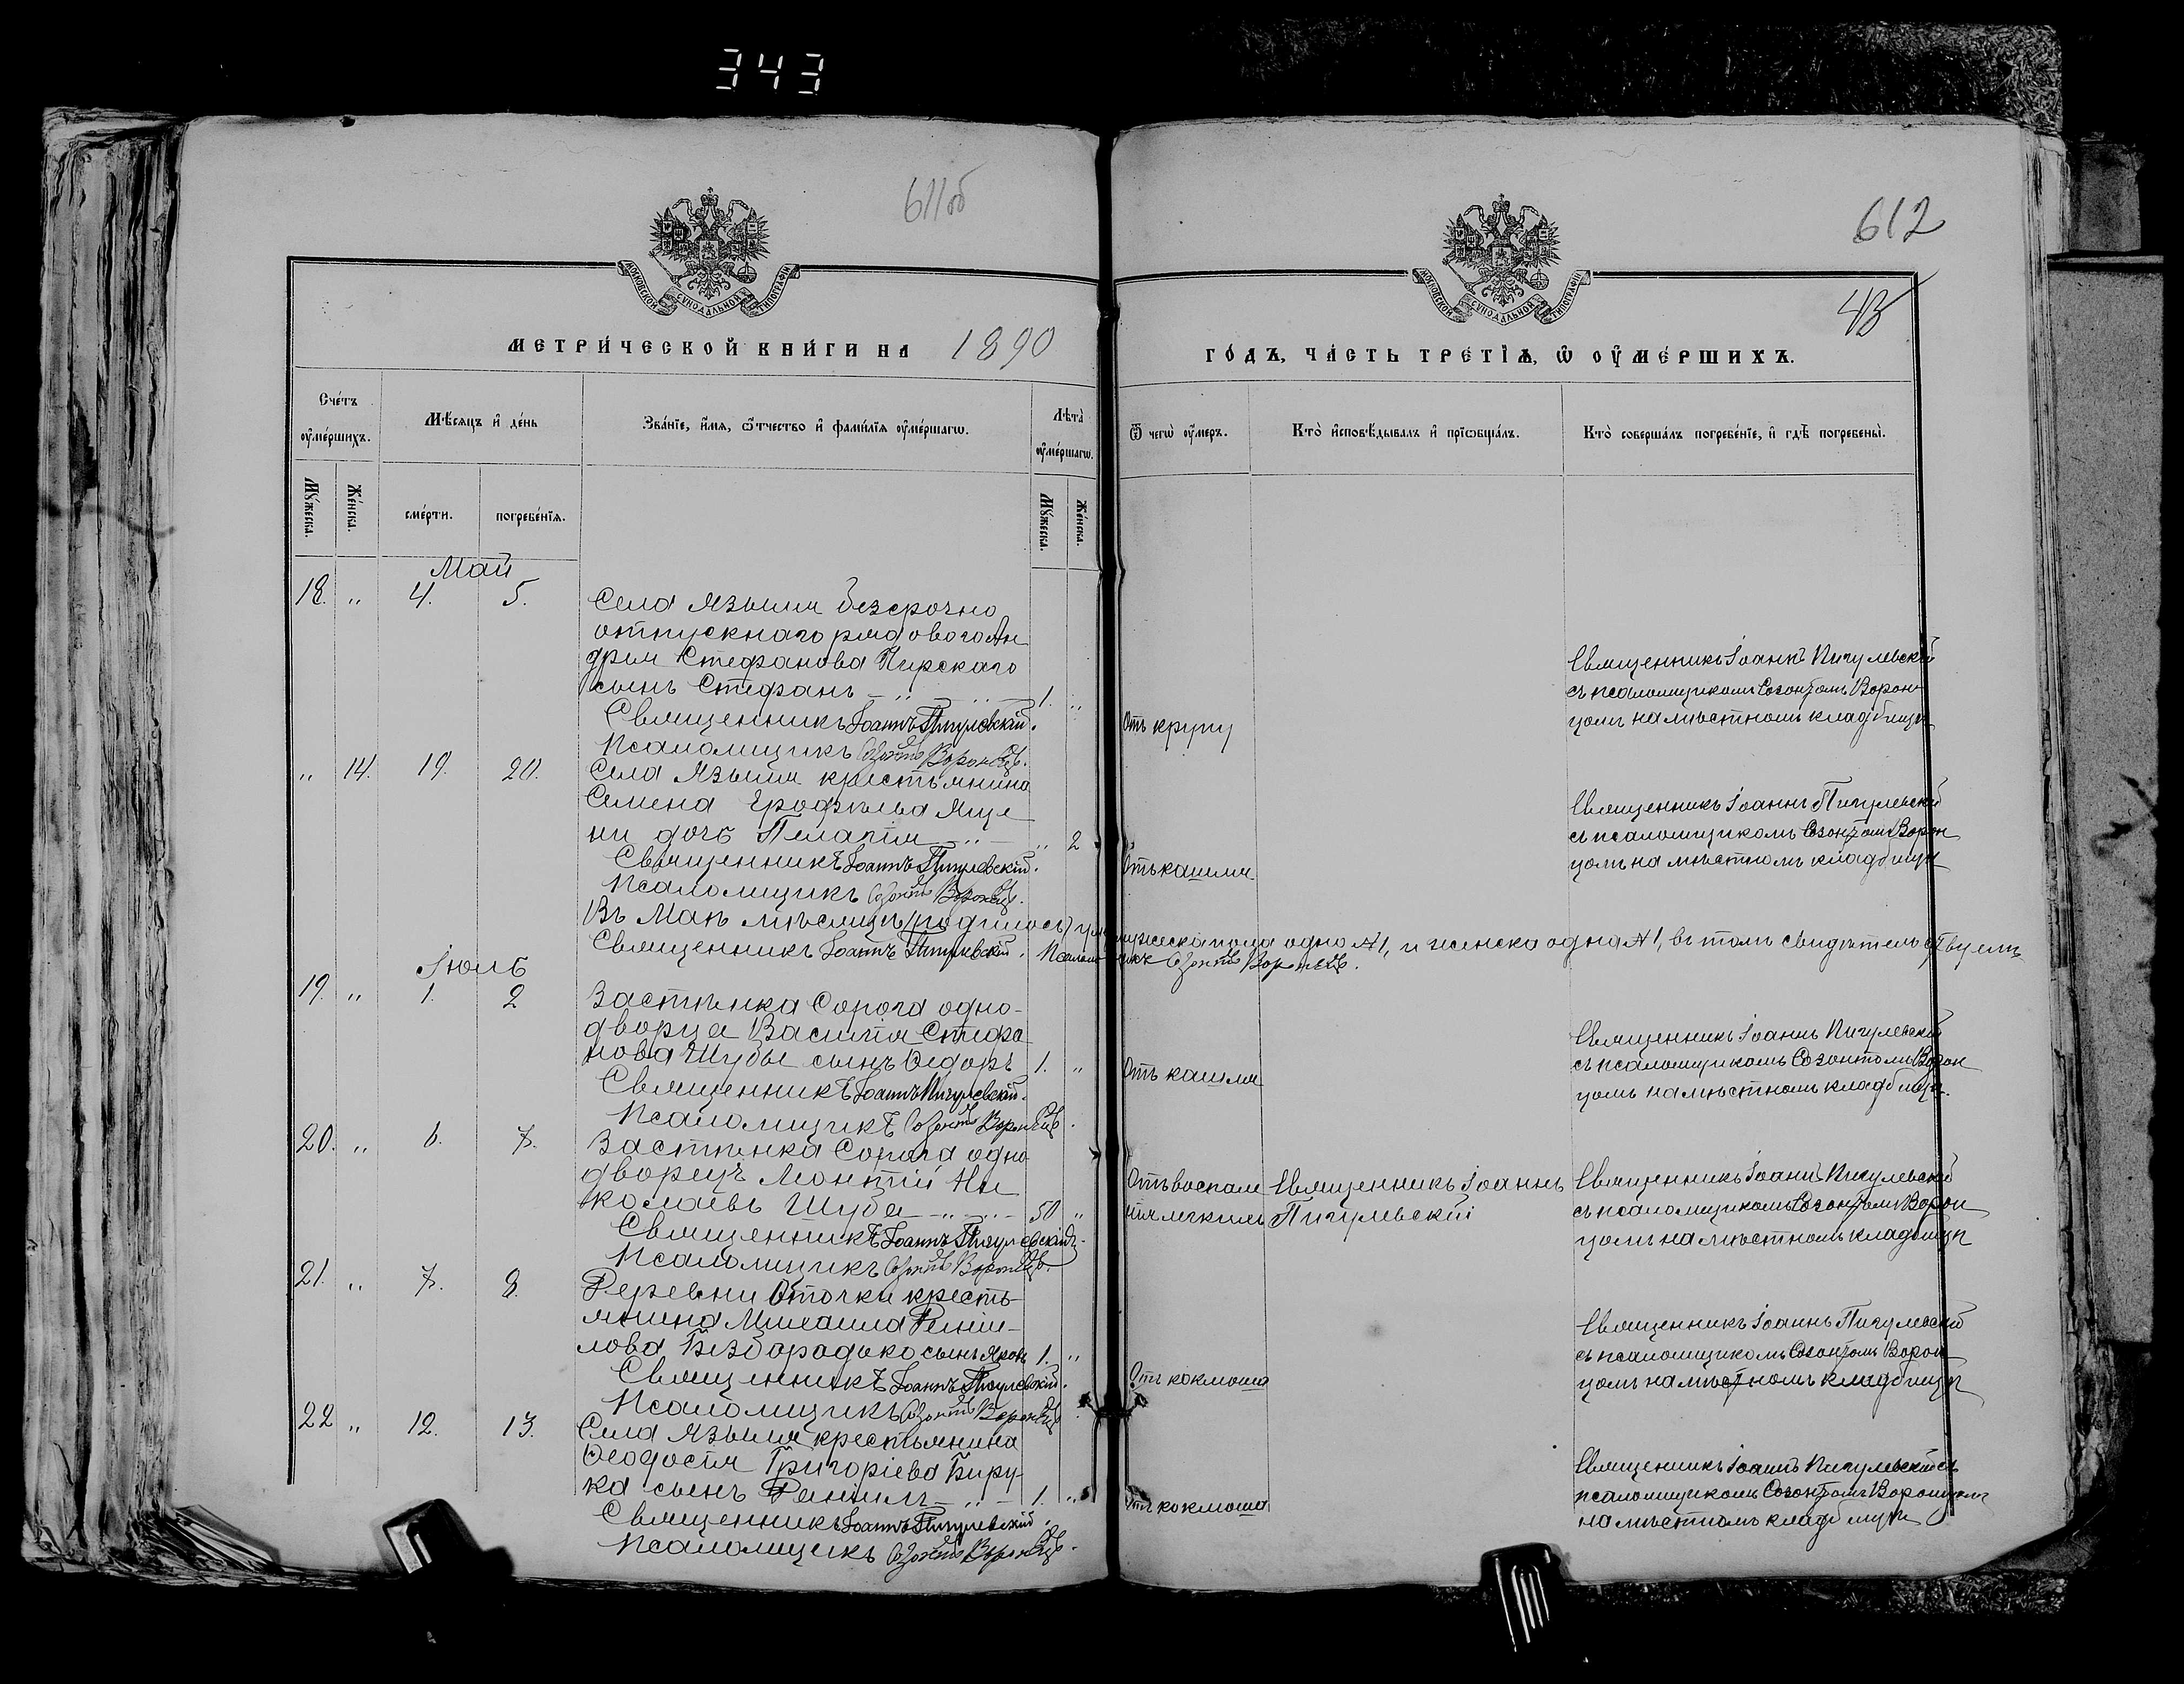 343
611об
612
43
МОСКОВСКОЙ СѴНОДАЛЬНОЙ ТИПОГРАФІИ
МОСКОВСКОЙ СѴНОДАЛЬНОЙ ТИПОГРАФІИ
МЕТРИ́ЧЕСКОЙ КНИ́ГИ НА 1890
ГО́ДЪ, ЧА́СТЬ ТРЕ́ТІѦ, Ѡ҆ ОУ҆МЕ́РШИХЪ.
Сче́тъ оу҆ме́ршихъ.
Мѣ́сяцъ и҆ де́нь
Зва́нїе, и҆́мя, ѻ҆́тчество и҆ фами́лїя оу҆ме́ршагѡ.
Лѣ́та оу҆ме́ршагѡ.
Ѿ чегѡ̀ оу҆́меръ.
Кто̀ и҆сповѣ́дывалъ и҆ прїѡбща́лъ.
Кто̀ соверша́лъ погребе́нїе, и҆ гдѣ̀ погребены̀.
Мꙋ́жеска.
Же́нска.
сме́рти.
погребе́нїя.
Мꙋ́жеска.
Же́нска.
Май
18. " 4. 5.
Села Языля безсрочно
отпускнаго рядоваго Ан
дрея Стефанова Пирскаго
сынъ Стефанъ 1. "
Священникъ Іоаннъ Пигулевскій.
Псаломщикъ Созонтъ Воронецъ.
Отъ крупу
Священникъ Іоаннъ Пигулевскій
съ псаломщикомъ Созонтомъ Ворон
цомъ на мѣстномъ кладбищѣ
" 14. 19. 20.
Села Языля крестьянина
Семена Ерофѣева Яце
ни дочь Пелагія " 2
Священникъ Іоаннъ Пигулевскій.
Псаломщикъ Созонтъ Воронецъ.
Отъ кашля
Священникъ Іоаннъ Пигулевскій
съ псаломщикомъ Созонтомъ Ворон
цомъ на мѣстномъ кладбищѣ
Въ Маѣ мѣсяцѣ (родилось) мужеска пола одно №1, и женска одна №1, въ томъ свидѣтельствуемъ
Священникъ Іоаннъ Пигулевскій. Псаломщикъ Созонтъ Воронецъ.
Іюль
19. " 1. 2
Застѣнка Сорога одно-
дворца Василія Стефа
нова Шубы сынъ Ѳедоръ 1. "
Священникъ Іоаннъ Пигулевскій.
Псаломщикъ Созонтъ Воронецъ.
Отъ кашля
Священникъ Іоаннъ Пигулевскій
съ псаломщикомъ Созонтомъ Ворон
цомъ на мѣстномъ кладбищѣ.
20. " 6. 7.
Застѣнка Сорога одно
дворецъ Леонтій Ни
колаевъ Шуба 50 "
Священникъ Іоаннъ Пигулевскій
Псаломщикъ Созонтъ Воронецъ.
Отъ воспале
нія легкихъ
Священникъ Іоаннъ
Пигулевскій
Священникъ Іоаннъ Пигулевскій
съ псаломщикомъ Созонтомъ Ворон
цомъ на мѣстномъ кладбищѣ
21. " 7. 8.
Деревни Оточки кресть-
янина Михаила Дании-
лова Безбородько сынъ Яковъ 1. "
Священникъ Іоаннъ Пигулевскій.
Псаломщикъ Созонтъ Воронецъ
Отъ коклюша
Священникъ Іоаннъ Пигулевскій
съ псаломщикомъ Созонтомъ Ворон
цомъ на мѣстномъ кладбищѣ
22 " 12. 13.
Села Языля крестьянина
Ѳеодосія Григоріева Биру-
ка сынъ Даніилъ 1. "
Священникъ Іоаннъ Пигулевскій.
Псаломщикъ Созонтъ Воронецъ.
Отъ коклюша
Священникъ Іоаннъ Пигулевскій съ
псаломщикомъ Созонтомъ Воронцомъ
на мѣстномъ кладбищѣ